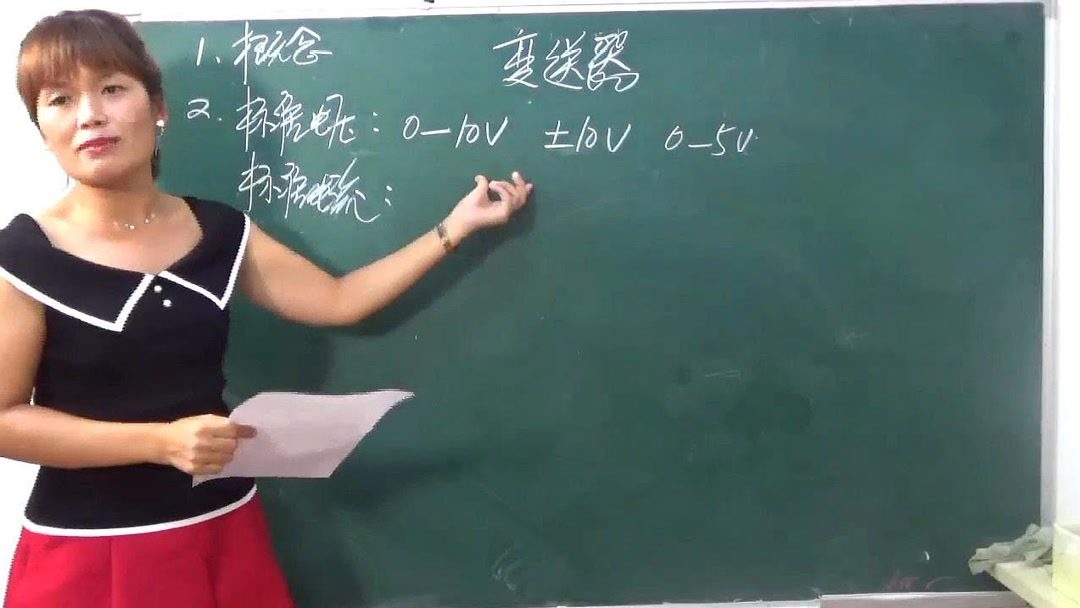 变送器
1、概念
2. 标准电压：0—10V ±10V 0—5V
标准电流：